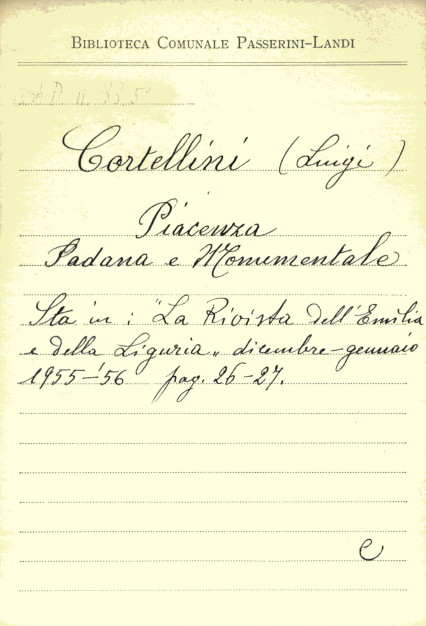 BIBLIOTECA COMUNALE PASSERINI-LANDI
Cortellini (Luigi)
Piacenza
Padana e Monumentale
Sta in: "La Rivista dell'Emilia
e della Liguria„ dicembre-gennaio
1955-'56 pag. 26-27.
e